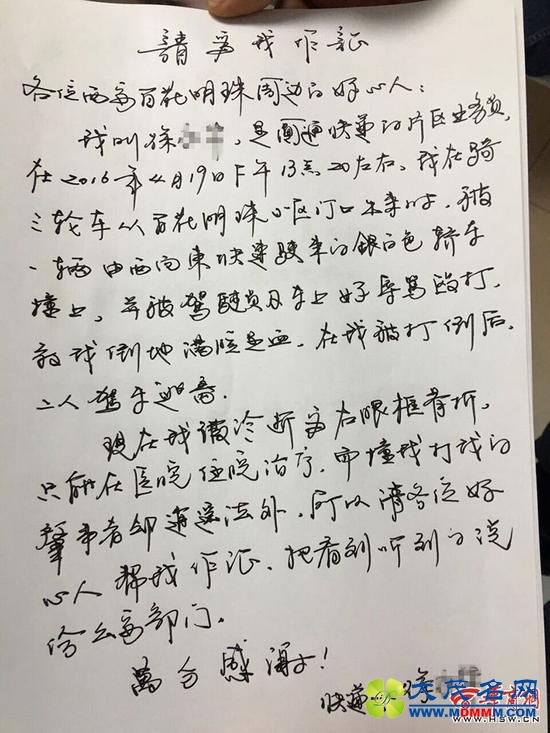 請為我作証
各位西安百花明珠周边的好心人：
我叫徐，是圆通快递的片区业务员，
在2016年4月19日下午13点20左右，我在骑
三轮车从百花明珠小区门口出来时，被
一辆由西向東快速駛来的银白色轿车
撞上，并被驾驶员及车上好辱骂殴打，
致我倒地满脸是血，在我被打倒后，
二人驾车逃离.
现在我被诊断为右眼框骨折，
只能在医院住院治疗，而撞我打我的
肇事者却逍遥法外，所以请各位好
心人帮我作证，把看到听到的说
给公安部门.
萬分感谢!
快递 徐
大茂名网
WWW.MDMMM.COM
WWW.HSW.CN